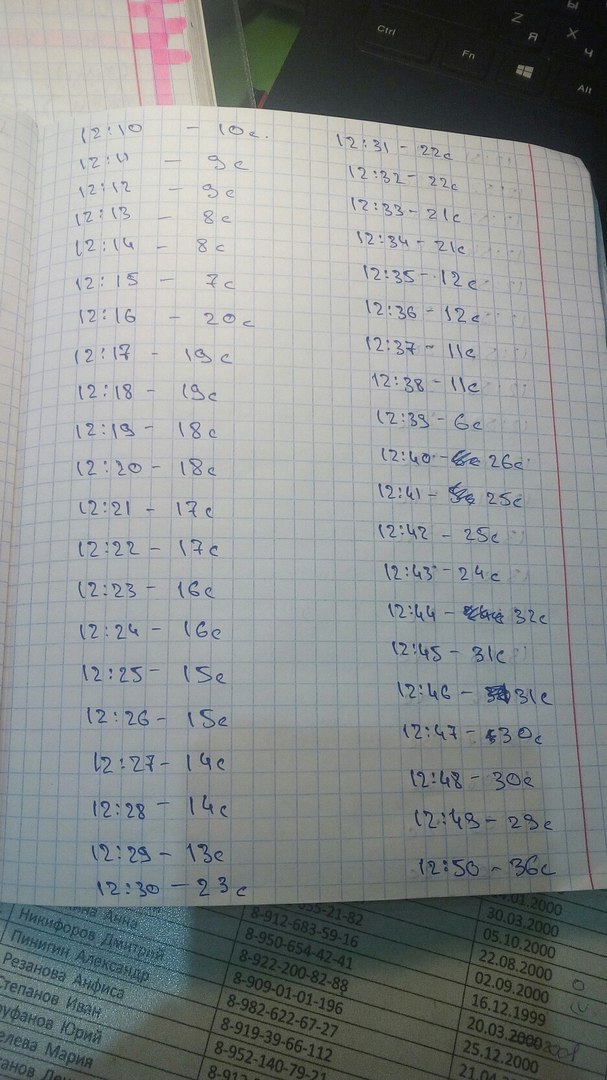 Z
Я
X
Ч
Ы
Ctrl
Fn
Alt
12:10 - 10с.
12:11 - 9с
12:12 - 9с
12:13 - 8с
12:14 - 8с
12:15 - 7с
12:16 - 20с
12:17 - 19с
12:18 - 19с
12:19 - 18с
12:20 - 18с
12:21 - 17с
12:22 - 17с
12:23 - 16с
12:24 - 16с
12:25 - 15с
12:26 - 15с
12:27 - 14с
12:28 - 14с
12:29 - 13с
12:30 - 23с
12:31 - 22с
12:32 - 22с
12:33 - 21с
12:34 - 21с
12:35 - 12с
12:36 - 12с
12:37 - 11с
12:38 - 11с
12:39 - 6с
12:40 - 26с
12:41 - 25с
12:42 - 25с
12:43 - 24с
12:44 - 32с
12:45 - 31с
12:46 - 31с
12:47 - 30с
12:48 - 30с
12:49 - 29с
12:50 - 36с
Анна 21-82 01.2000
Никифоров Дмитрий 8-912-683-59-16 30.03.2000
Пинигин Александр 8-950-654-42-41 05.10.2000
Резанова Анфиса 8-922-200-82-88 22.08.2000
Степанов Иван 8-909-01-01-196 02.09.2000
Юрий 8-982-622-67-27 16.12.1999
Мария 8-919-39-66-112 20.03.2000
8-952-140-79-21 25.12.2000
21.04